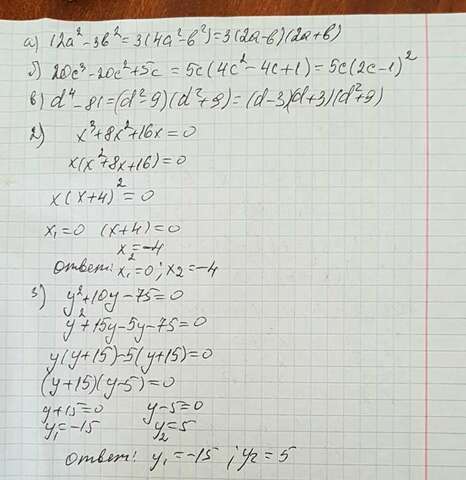 а) 12a²-3b²=3(4a²-b²)=3(2a-b)(2a+b)
б) 20c³-20c²+5c=5c(4c²-4c+1)=5c(2c-1)²
в) d⁴-81=(d²-9)(d²+9)=(d-3)(d+3)(d²+9)
2) x³+8x²+16x=0
x(x²+8x+16)=0
x(x+4)²=0
x₁=0 (x+4)=0
x₂=-4
ответ: x₁=0; x₂=-4
3) y²+10y-75=0
y²+15y-5y-75=0
y(y+15)-5(y+15)=0
(y+15)(y-5)=0
y+15=0 y-5=0
y₁=-15 y₂=5
ответ: y₁=-15; y₂=5